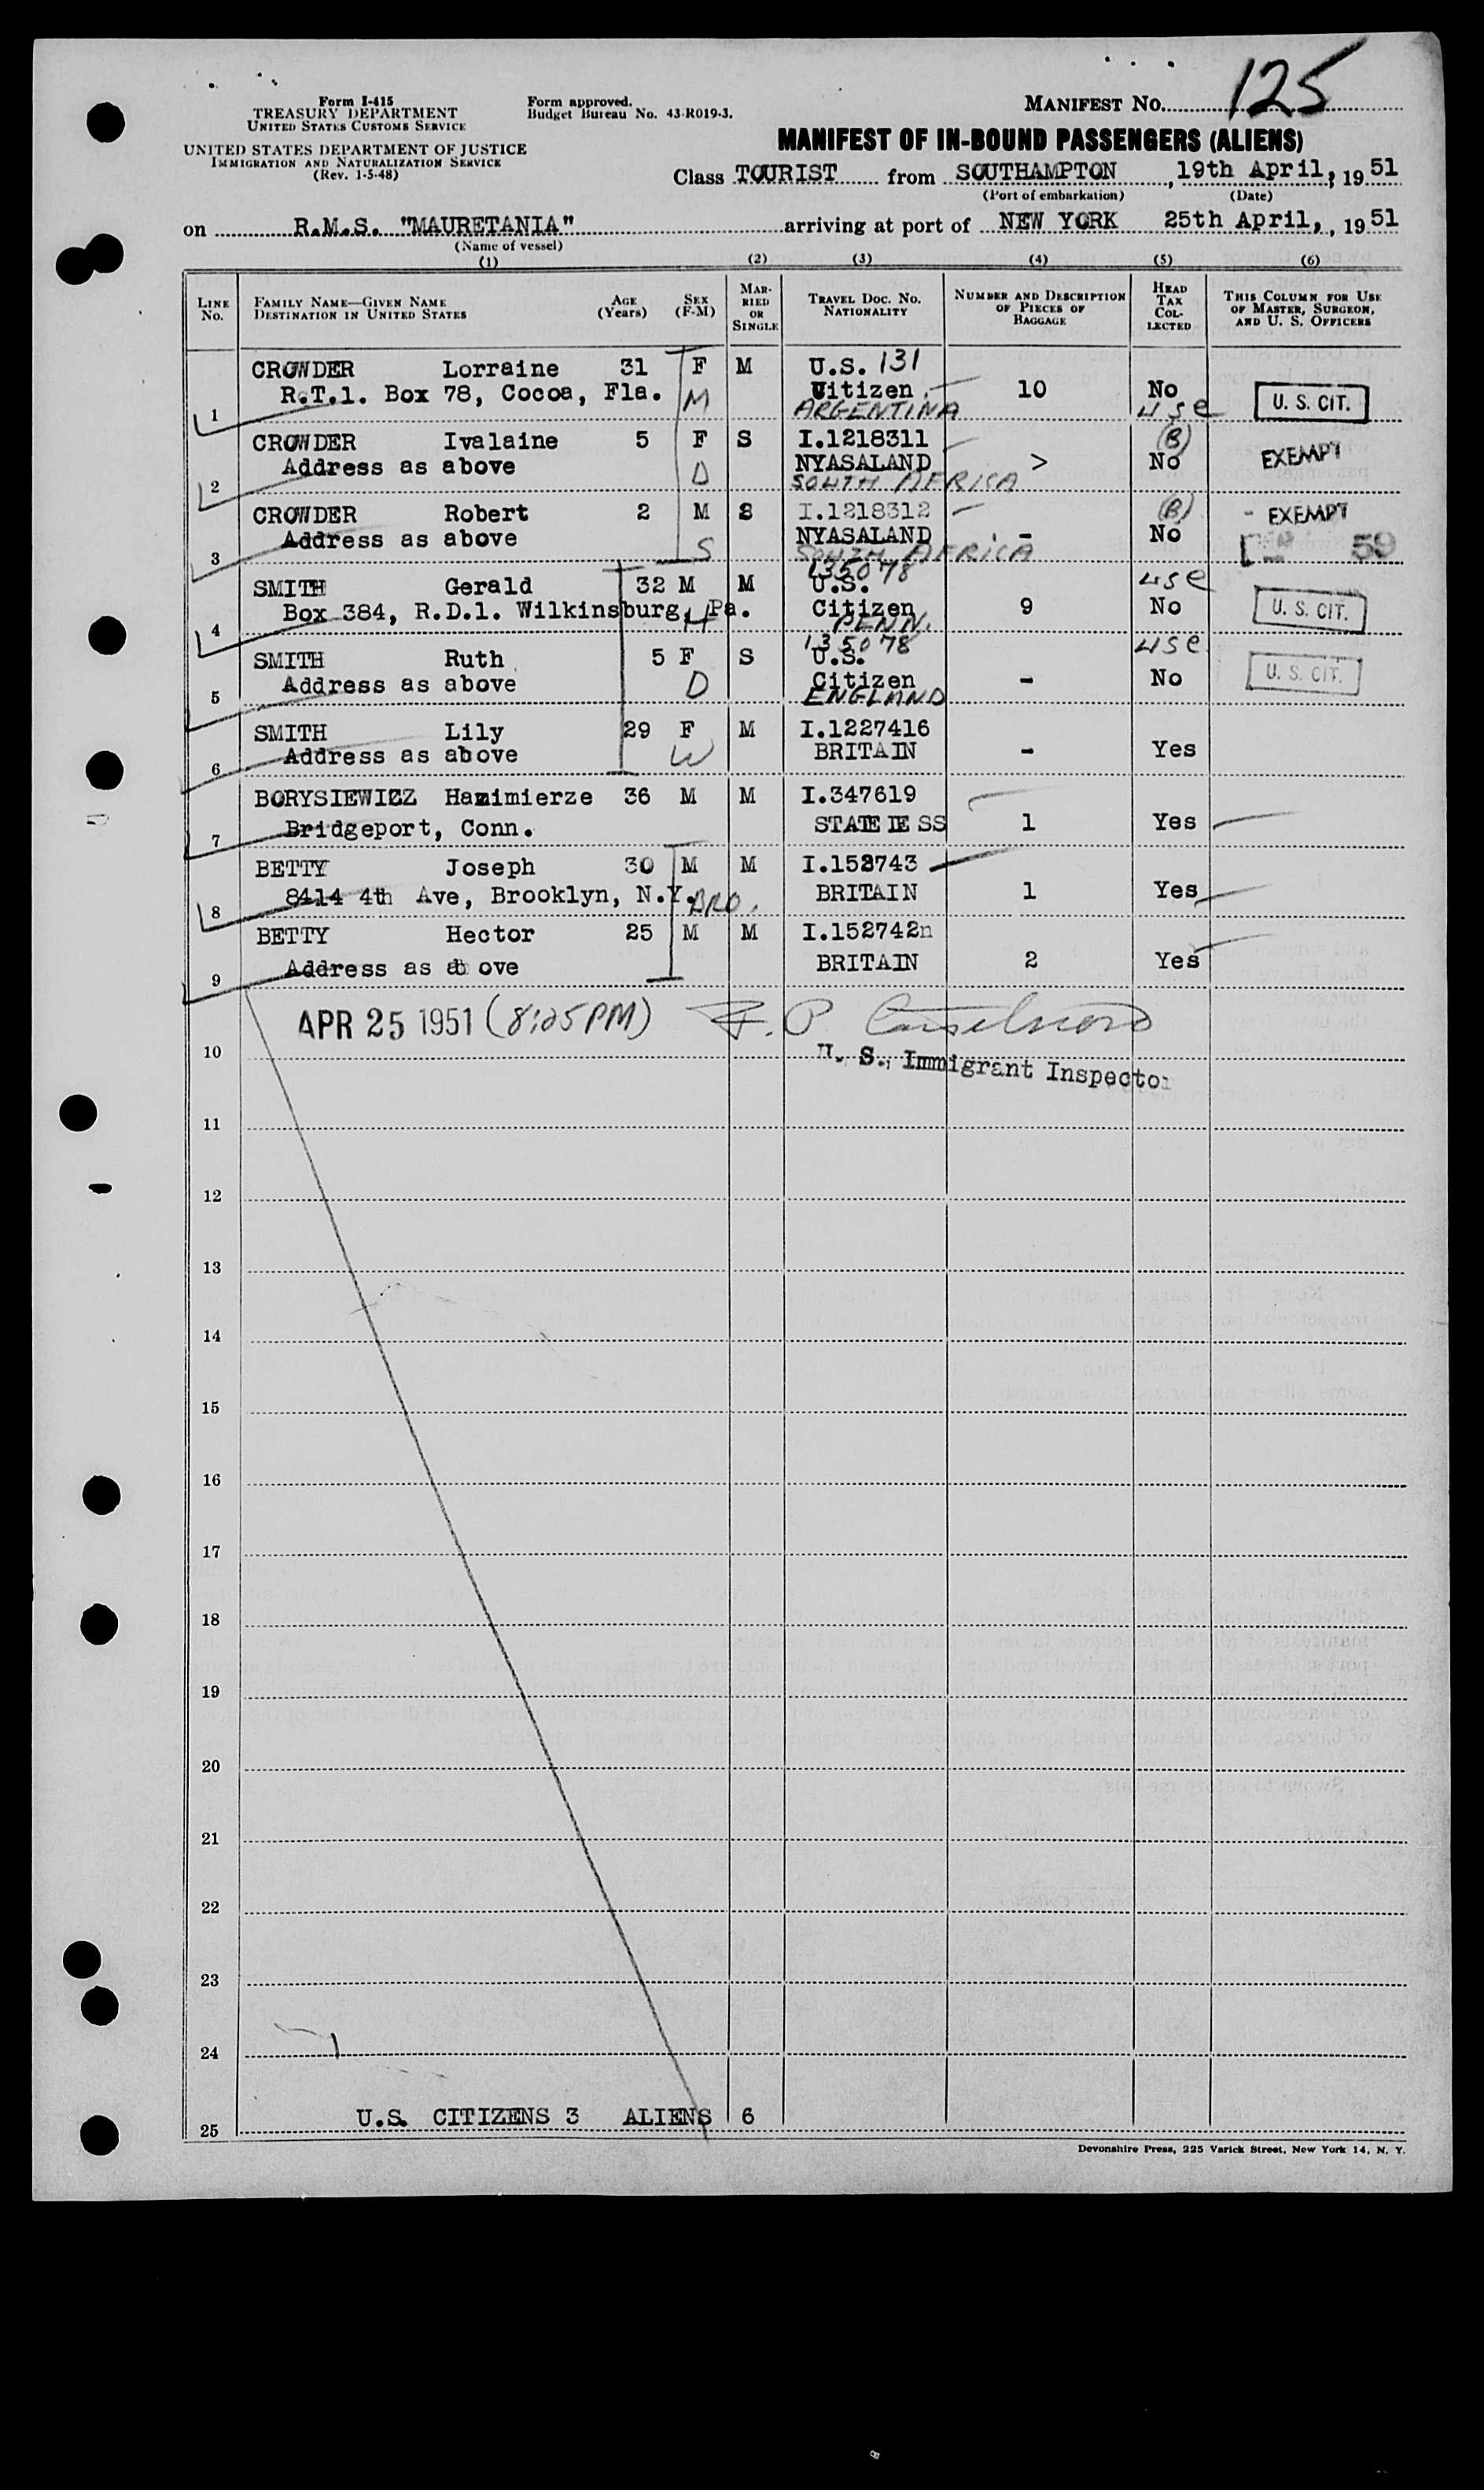 Form I-415
TREASURY DEPARTMENT
UNITED STATES CUSTOMS SERVICE
UNITED STATES DEPARTMENT OF JUSTICE
IMMIGRATION AND NATURALIZATION SERVICE
(Rev. 1-5-48)
Form approved.
Budget Bureau No. 43-R019-3.
MANIFEST NO. 125
MANIFEST OF IN-BOUND PASSENGERS (ALIENS)
Class TOURIST from SOUTHAMPTON, 19th April, 1951
(Port of embarkation) (Date)
on R.M.S. "MAURETANIA" arriving at port of NEW YORK 25th April, , 1951
(Name of vessel)
(1) (2) (3) (4) (5) (6)
LINE NO. FAMILY NAME—GIVEN NAME DESTINATION IN UNITED STATES AGE (Years) SEX (F-M) MARRIED OR SINGLE TRAVEL DOC. NO. NATIONALITY NUMBER AND DESCRIPTION OF PIECES OF BAGGAGE HEAD TAX COLLECTED THIS COLUMN FOR USE OF MASTER, SURGEON, AND U. S. OFFICERS
CROWDER Lorraine 31 F M U.S. 131
1 R.T.1. Box 78, Cocoa, Fla. M Citizen 10 No U. S. CIT.
ARGENTINA USC
CROWDER Ivalaine 5 F S I.1218311 (B)
2 Address as above D NYASALAND > No EXEMPT
SOUTH AFRICA
CROWDER Robert 2 M S I.1218312 (B) - EXEMPT
3 Address as above S NYASALAND - No 59
SOUTH AFRICA
135078
SMITH Gerald 32 M M U.S. USC
4 Box 384, R.D.1. Wilkinsburg, Pa. H Citizen 9 No U. S. CIT.
PENN.
135078 USC
SMITH Ruth 5 F S U.S.
5 Address as above D Citizen - No U. S. CIT.
ENGLAND
SMITH Lily 29 F M I.1227416
6 Address as above W BRITAIN - Yes
BORYSIEWICZ Hamimierze 36 M M I.347619
7 Bridgeport, Conn. STATELESS 1 Yes
BETTY Joseph 30 M M I.152743
8 8414 4th Ave, Brooklyn, N.Y. BRO. BRITAIN 1 Yes
BETTY Hector 25 M M I.152742n
9 Address as ab ove BRITAIN 2 Yes
APR 25 1951 (8:25PM)
10 U. S. Immigrant Inspector
11
12
13
14
15
16
17
18
19
20
21
22
23
24
25 U.S. CITIZENS 3 ALIENS 6
Devonshire Press, 225 Varick Street, New York 14, N. Y.